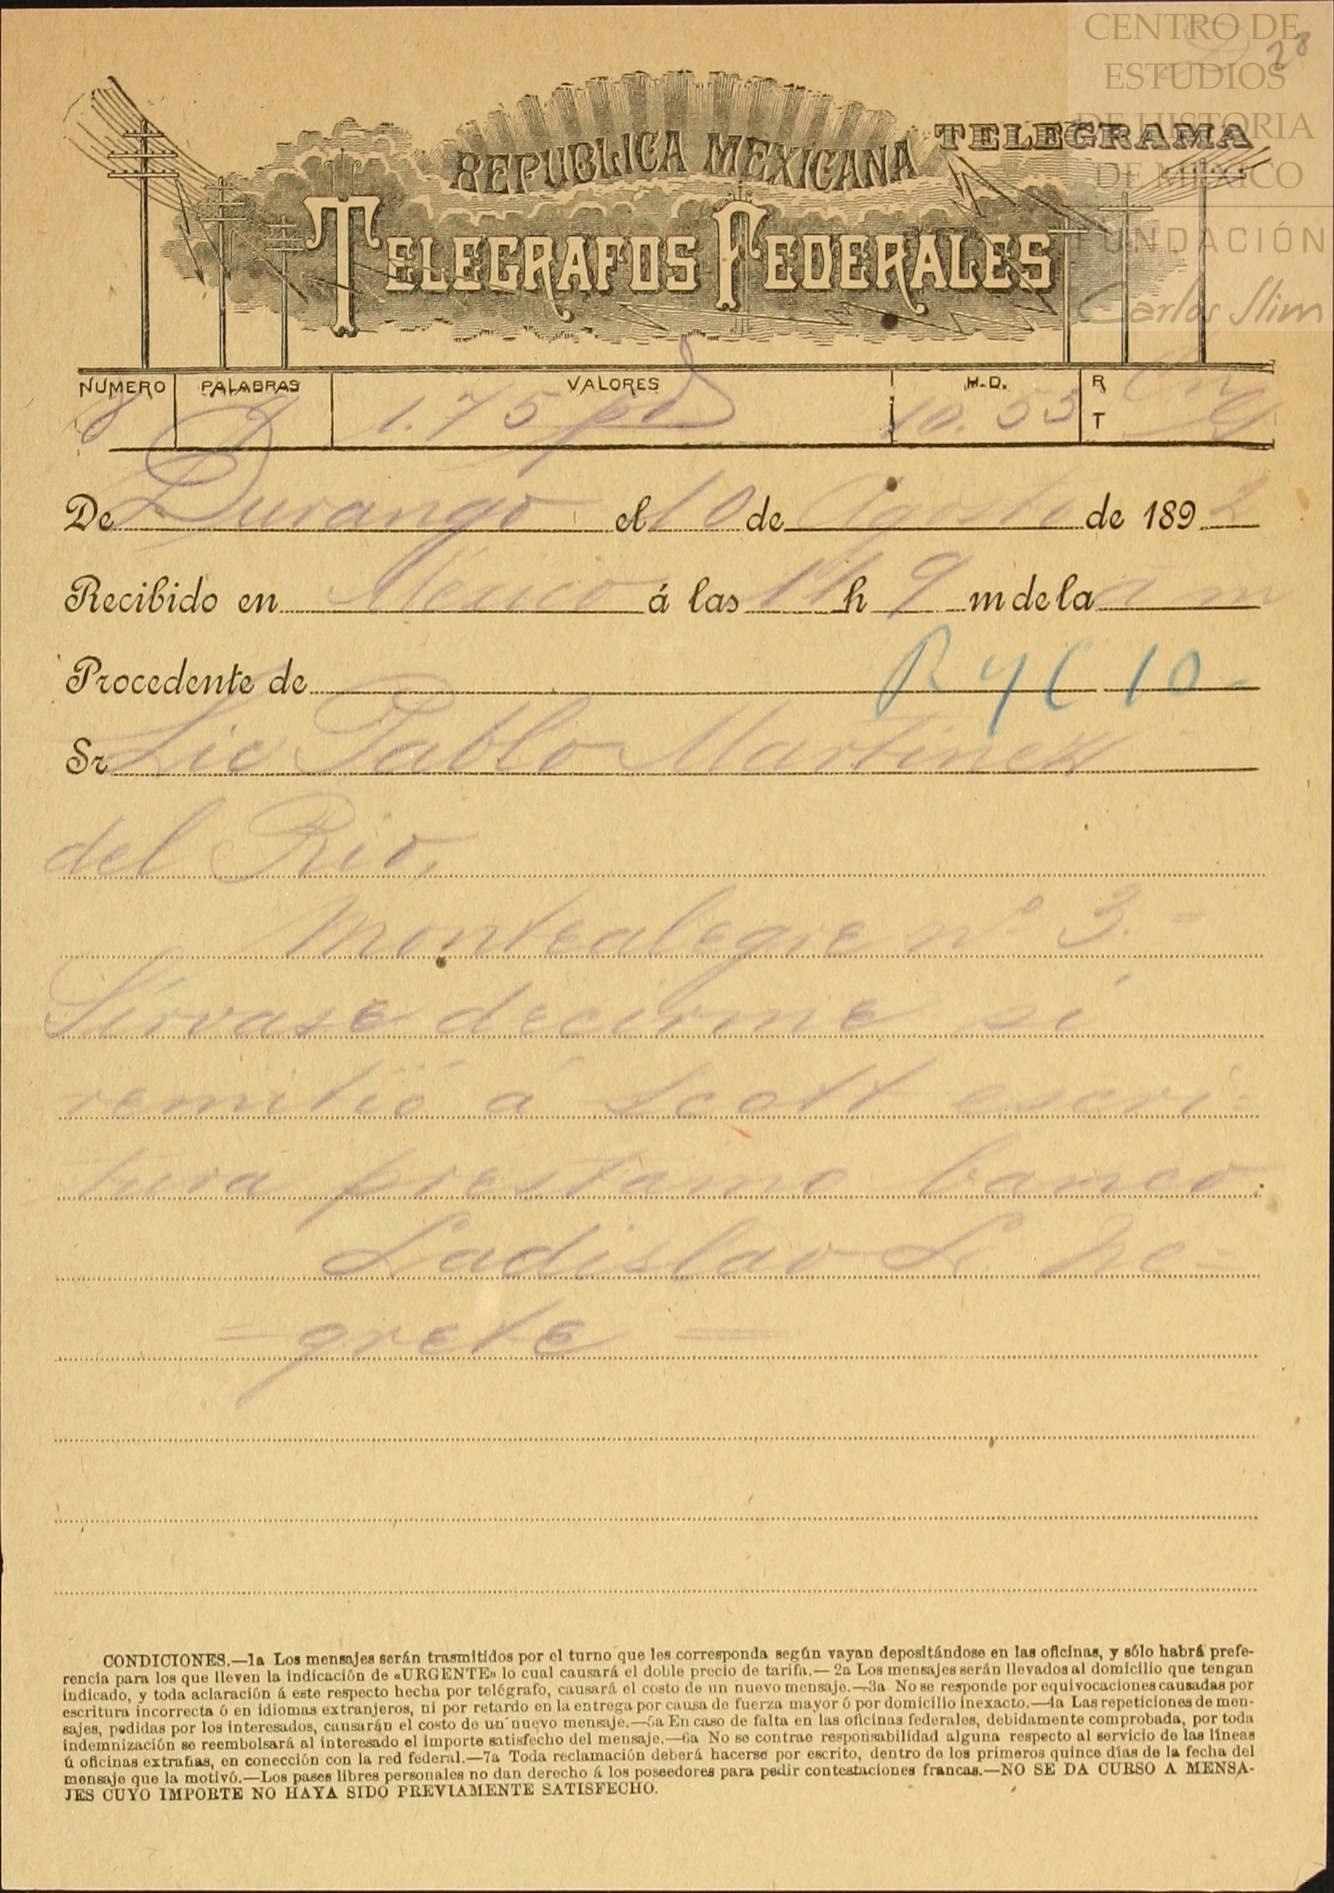 CENTRO DE
ESTUDIOS
DE HISTORIA
DE MÉXICO
FUNDACIÓN
Carlos Slim
28
REPUBLICA MEXICANA
TELEGRAMA
TELEGRAFOS FEDERALES
NUMERO PALABRAS VALORES H.D. R
8 9 1.75 pd 10.53 T
De Durango el 10 de Agosto de 1892
Recibido en Mexico á las 11 h 9 m de la a m
Procedente de R y C 10-
Sr Lic Pablo Martinez
del Rio,
Montealegre nº 3.=
Sírvase decirme si
remitió á Scott escri=
tura prestamo banco.
Ladislao L. Ne-
=grete=
CONDICIONES.—1a Los mensajes serán trasmitidos por el turno que les corresponda según vayan depositándose en las oficinas, y sólo habrá prefe-
rencia para los que lleven la indicación de «URGENTE» lo cual causará el doble precio de tarifa.—2a Los mensajes serán llevados al domicilio que tengan
indicado, y toda aclaración á este respecto hecha por telégrafo, causará el costo de un nuevo mensaje.—3a No se responde por equivocaciones causadas por
escritura incorrecta ó en idiomas extranjeros, ni por retardo en la entrega por causa de fuerza mayor ó por domicilio inexacto.—4a Las repeticiones de men-
sajes, pedidas por los interesados, causarán el costo de un nuevo mensaje.—5a En caso de falta en las oficinas federales, debidamente comprobada, por toda
indemnización se reembolsará al interesado el importe satisfecho del mensaje.—6a No se contrae responsabilidad alguna respecto al servicio de las líneas
ú oficinas extrañas, en conección con la red federal.—7a Toda reclamación deberá hacerse por escrito, dentro de los primeros quince días de la fecha del
mensaje que la motivó.—Los pases libres personales no dan derecho á los poseedores para pedir contestaciones francas.—NO SE DA CURSO A MENSA-
JES CUYO IMPORTE NO HAYA SIDO PREVIAMENTE SATISFECHO.